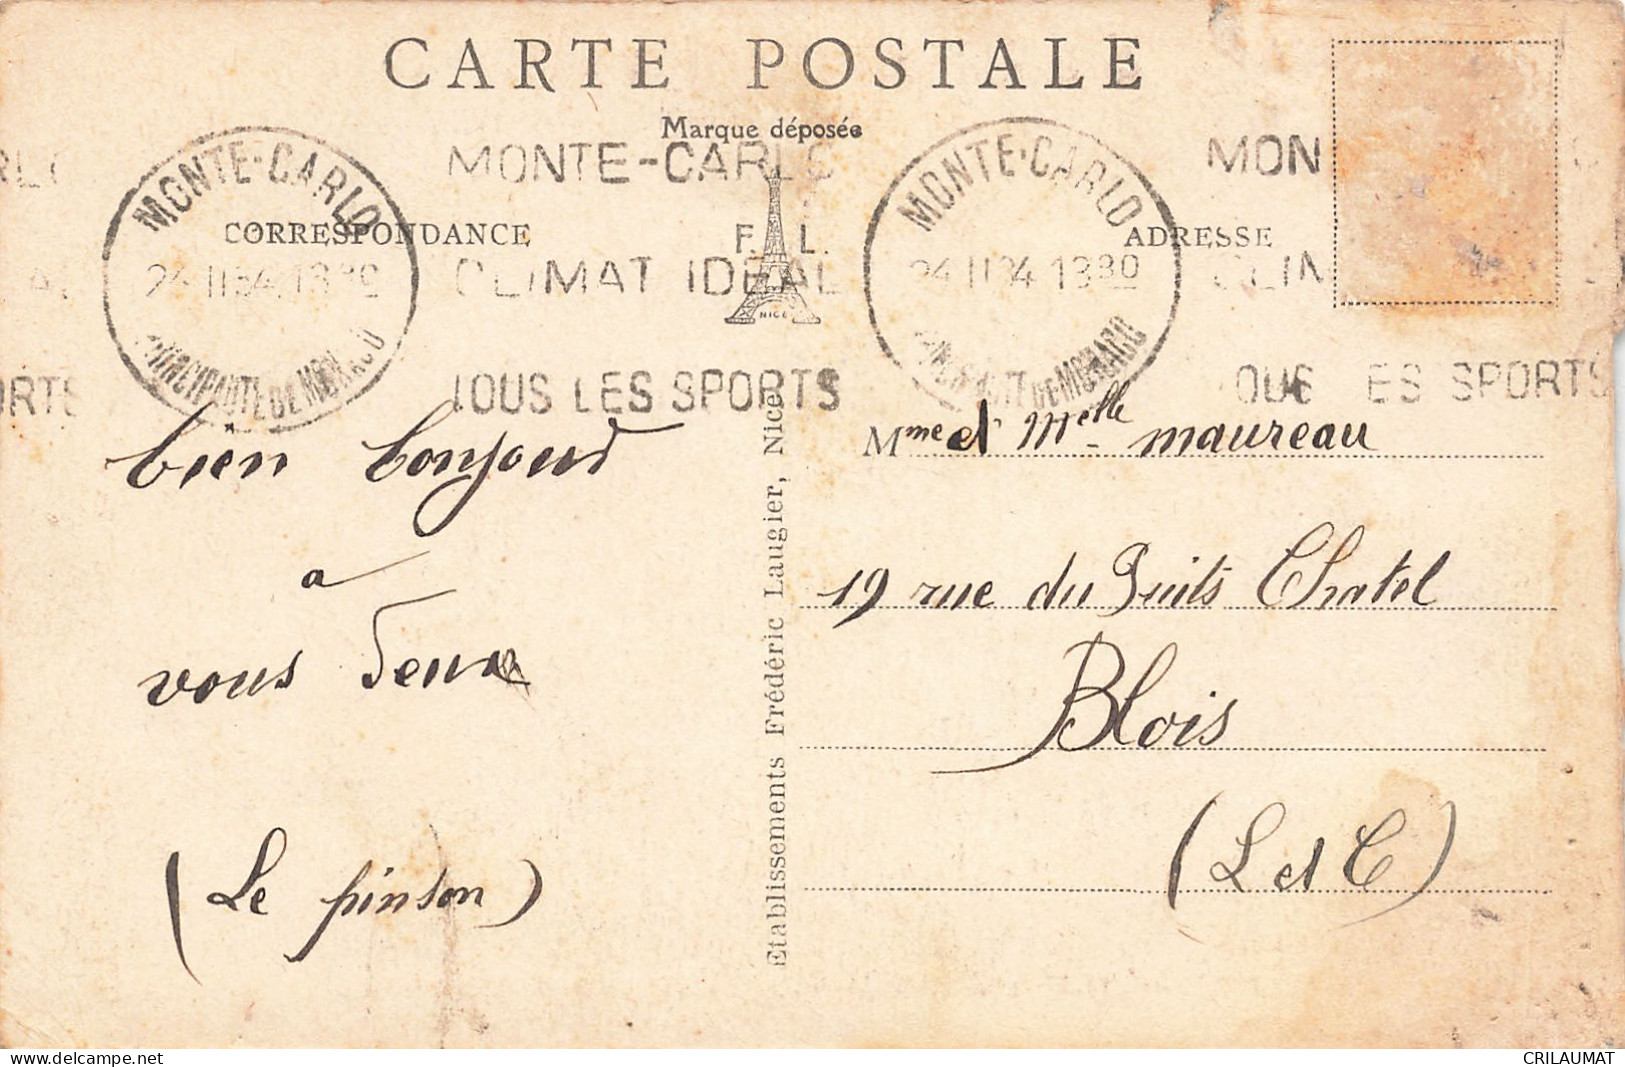 CARTE POSTALE
Marque déposée
MONTE-CARLO
MONTE-CARLO
MONTE-CARLO
MON
CORRESPONDANCE
F. L.
ADRESSE
24 II 34 1330
CLIMAT IDEAL
24 II 34 1330
CLIM
NICE
PRINCIPAUTE DE MONACO
TOUS LES SPORTS
PRINCIPAUTE DE MONACO
OUS ES SPORTS
ORTS
bien bonjour
à
vous deux
(Le pinson)
Etablissements Frédéric Laugier, Nice
Mme et Melle maureau
19 rue du Puits Chatel
Blois
(L et C)
delcampe.net
CRILAUMAT